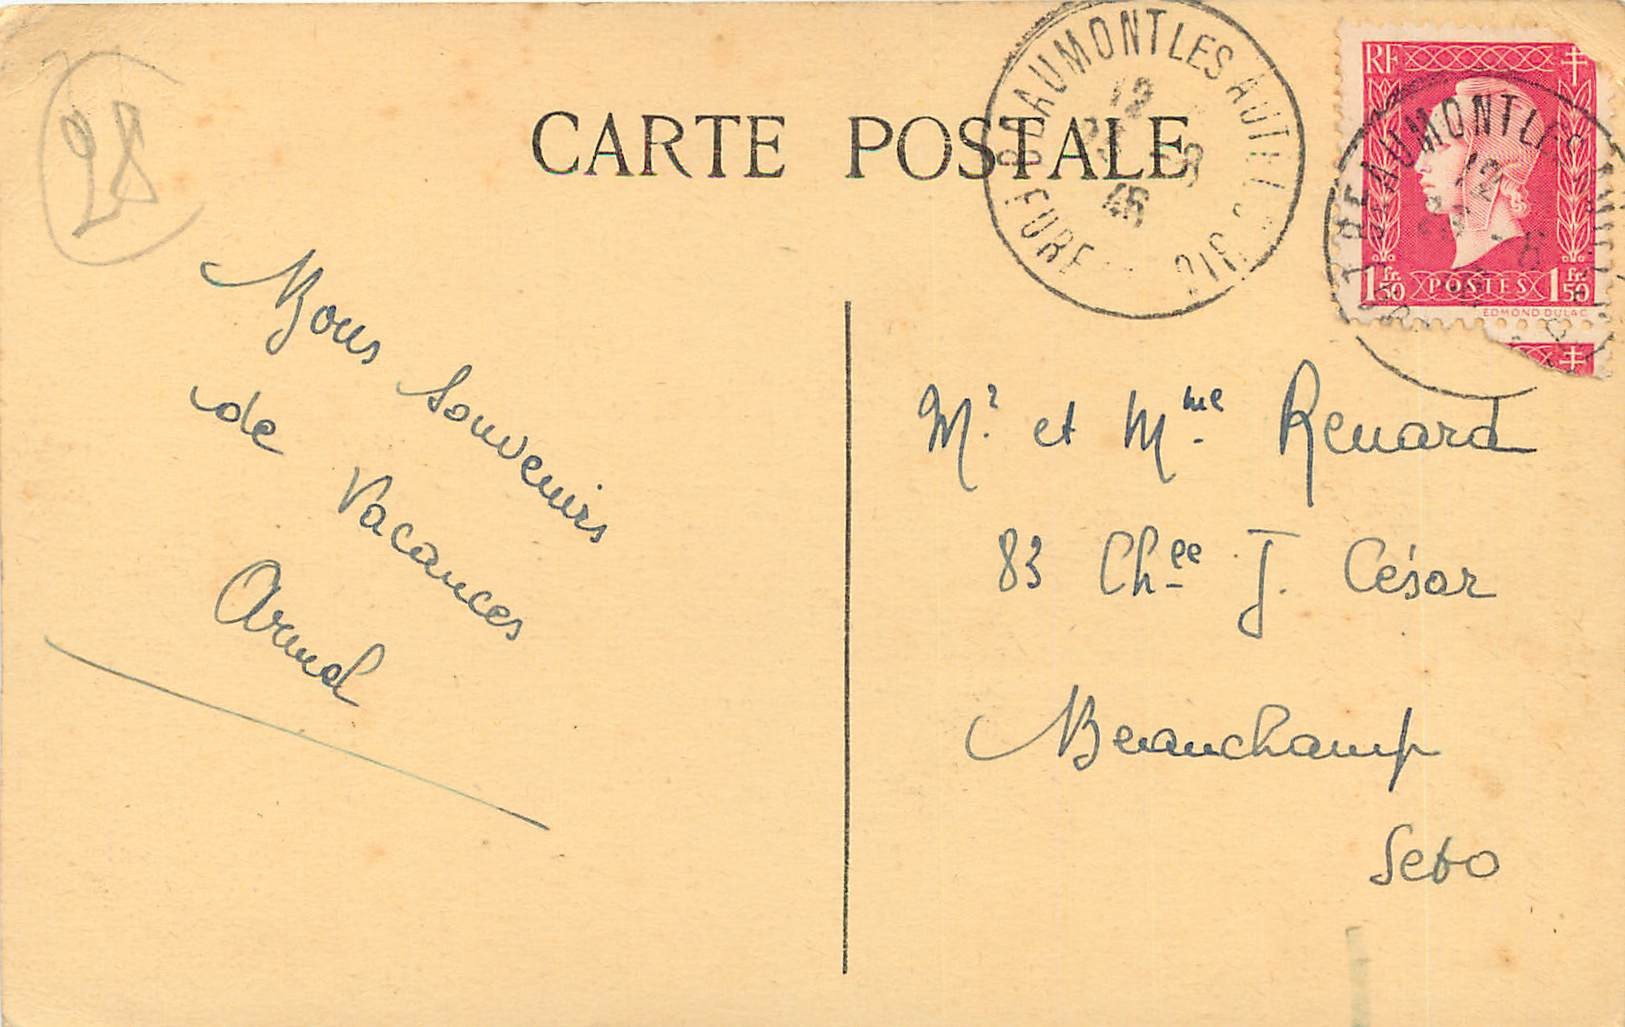 28
CARTE POSTALE
BEAUMONT LES AUTELS
12
46
EURE
RF
BEAUMONT LES AUTELS
12
1 Fr. 50 POSTES 1 Fr. 50
EDMOND DULAC
Bons souvenirs
de Vacances
Armel
Mr. et Mme Renard
83 Chée J. César
Beauchamp
Seto